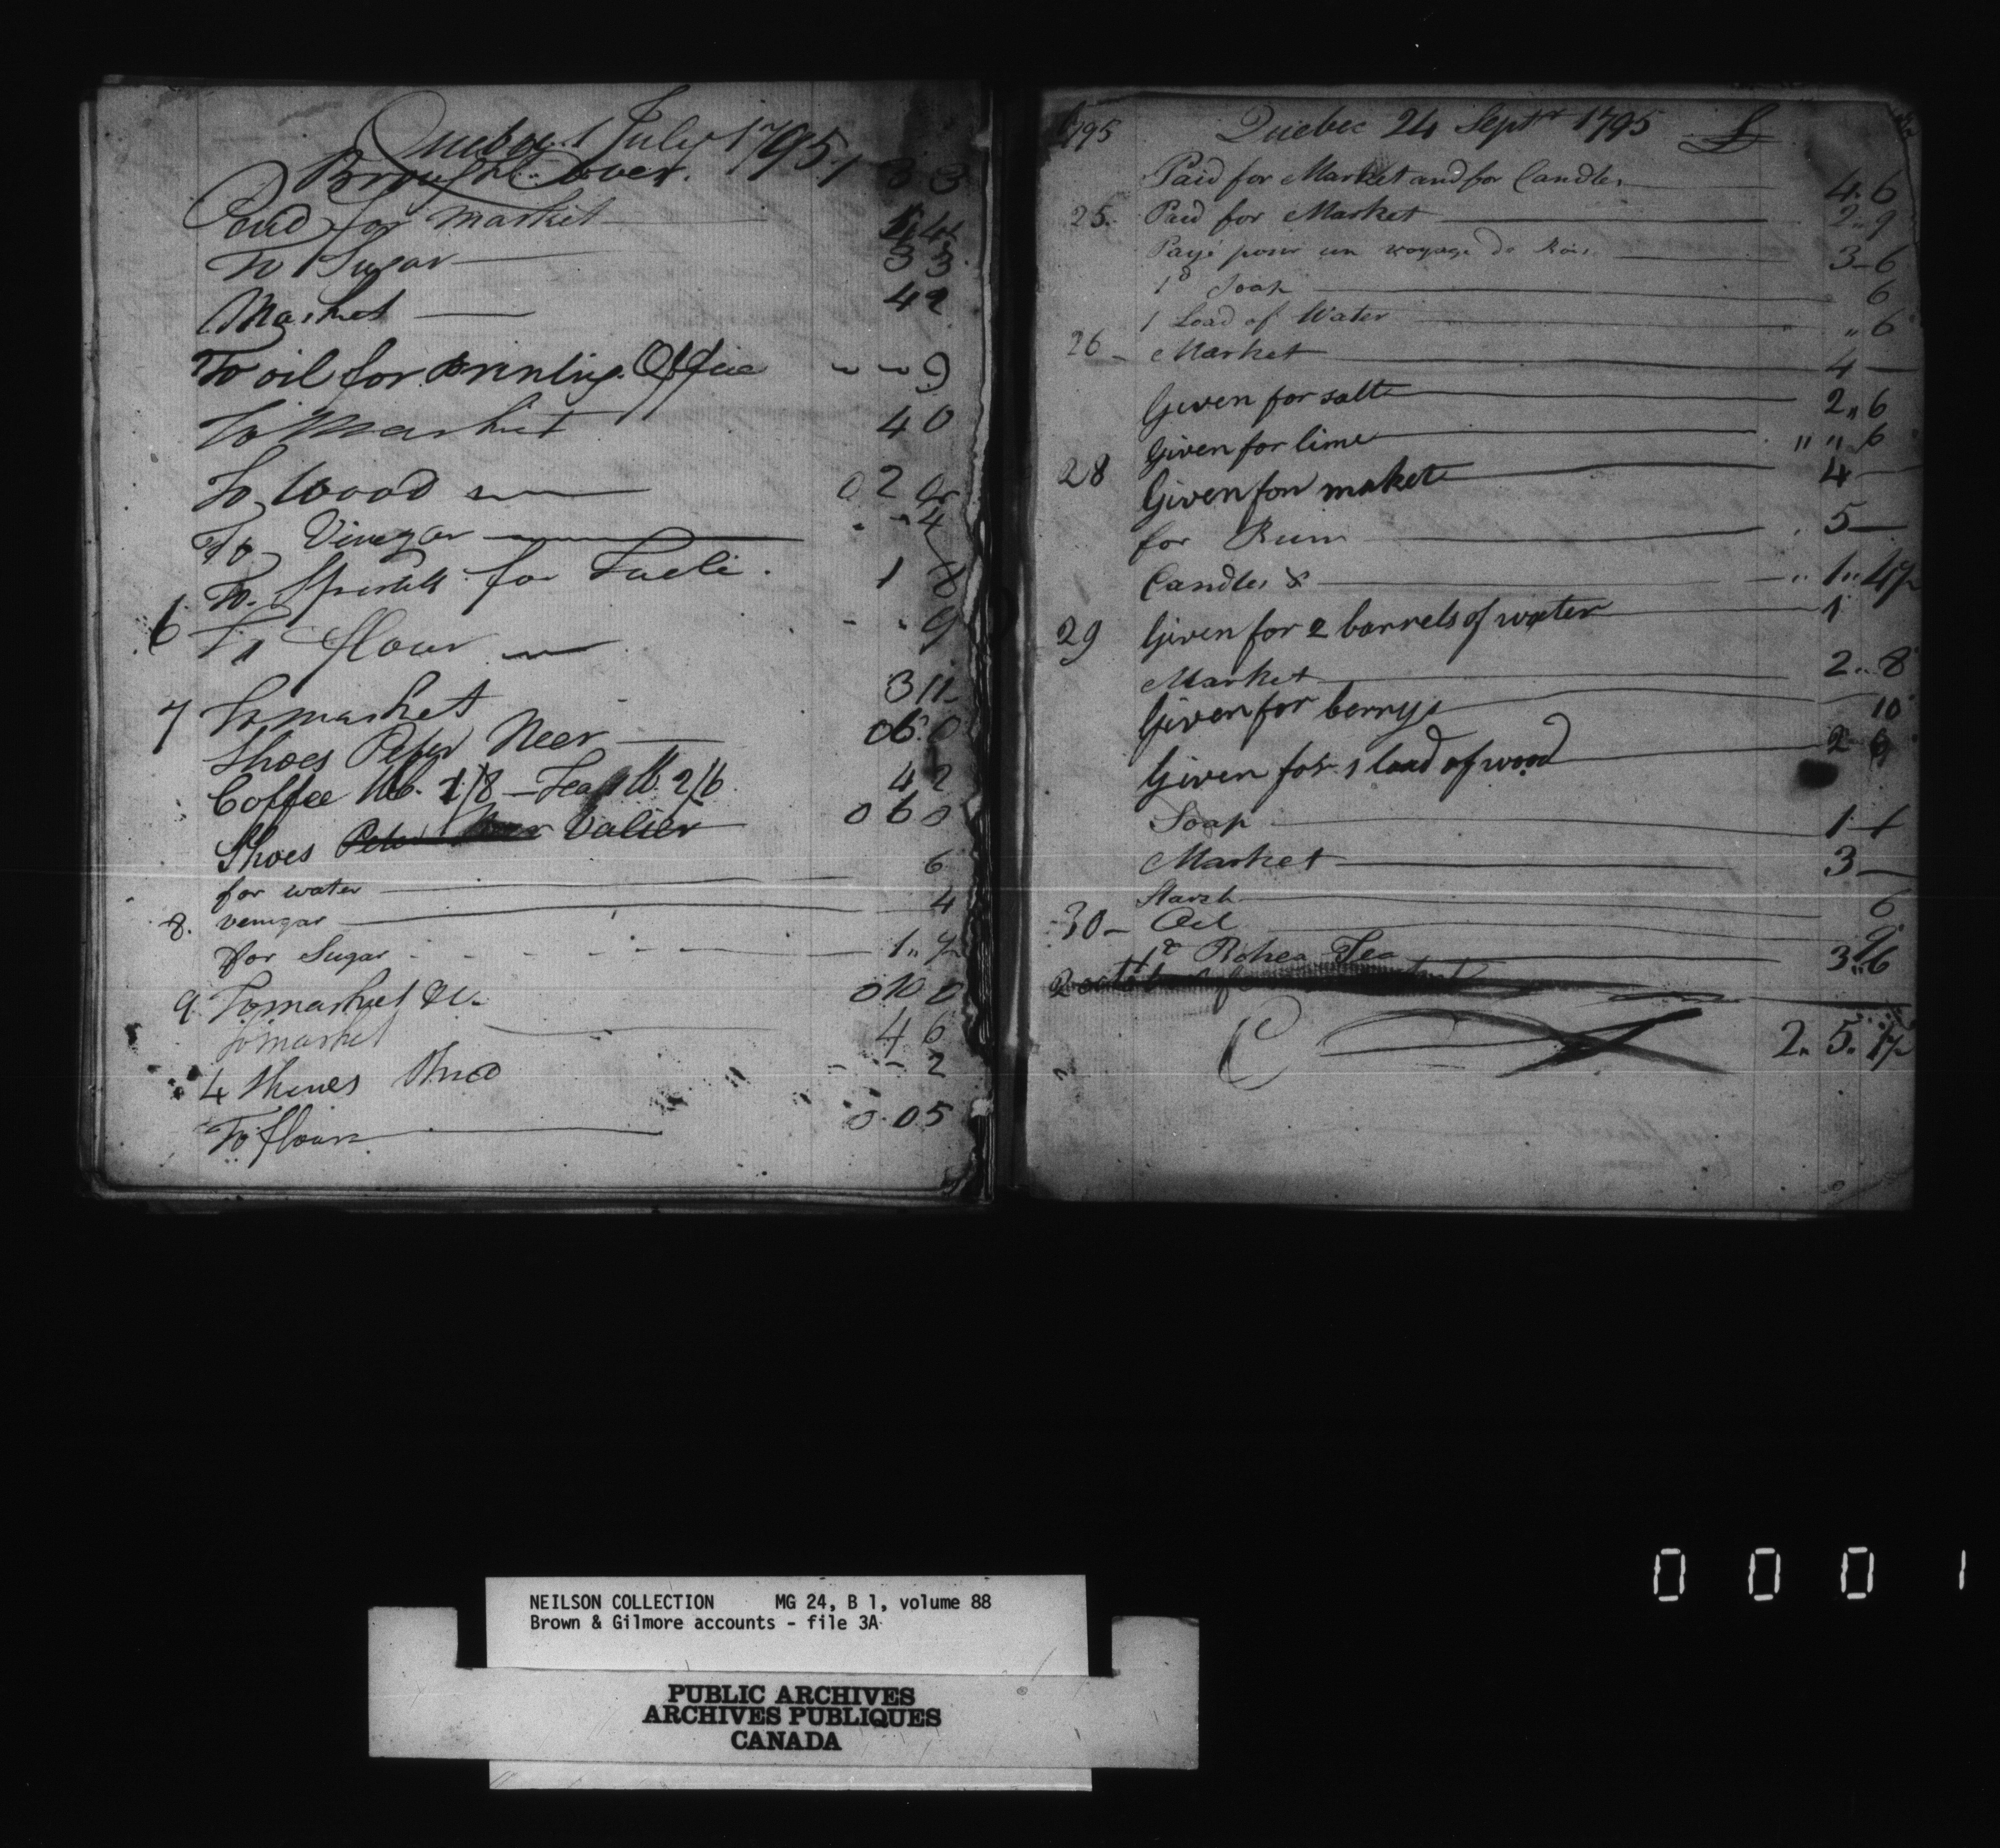 Quebec 1 July 1795
Brought over. 1 3 3
Paid for market 4
To Sugar 3 3
Market 4 2
To oil for printing Office 9
To Market 4 0
To Wood 0 2
To Vinegar 4
To for 1 8
6 To flour 9
7 To market 3 11
Shoes Peter Neer 0 6 0
Coffee 1 lb. 1/8 - Tea 1 lb 2/6 4 2
Shoes Valier 0 6 0
for water 6
8. venigar 4
for Sugar 1
9 To market &c. 0 10 0
To market 4 6
4 2
To flour 0 0 5
1795 Quebec 24 Septr 1795 £
Paid for Market and for Candles 4. 6
25. Paid for Market 2.. 9
Payé pour un voyage de Bois 3 - 6
1 Soap 6
1 Load of Water „ 6
26 - Market 4 -
Given for salt 2„ 6
Given for lime „ „ 6
28 Given for market 4 -
for Rum 5 -
Candles & 1„ 4½
29 Given for 2 barrels of water 1
Market 2.. 8
Given for berrys 10
Given for 1 load of wood 2 6
Soap 1
Market 3 -
Starch 6
30 - Oil 9
1 Bohea Tea 3„ 6
2. 5. 1½
NEILSON COLLECTION MG 24, B 1, volume 88
Brown & Gilmore accounts - file 3A
PUBLIC ARCHIVES
ARCHIVES PUBLIQUES
CANADA
0 0 0 1